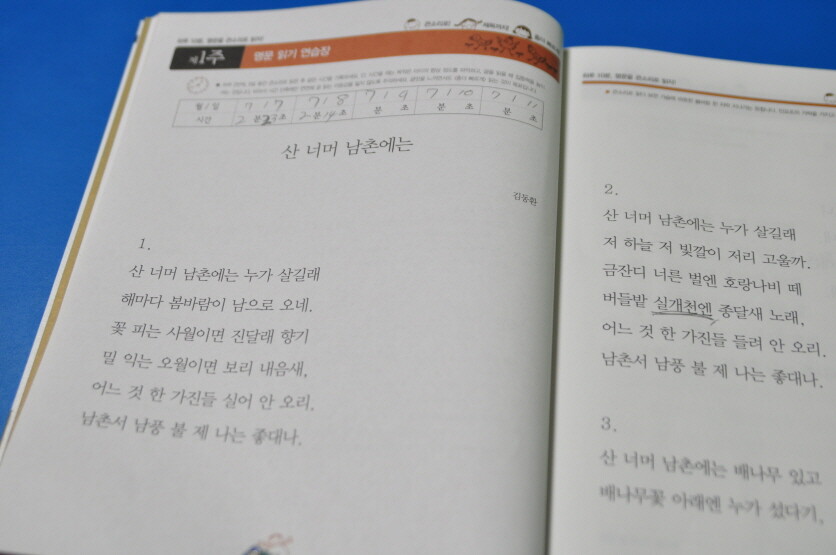 제1주 명문 읽기 연습장
월/일 7/7 7/8 7/9 7/10 7/11
시간 2분23초 2분14초 분 초 분 초 분 초
산 너머 남촌에는
김동환
1.
산 너머 남촌에는 누가 살길래
해마다 봄바람이 남으로 오네.
꽃 피는 사월이면 진달래 향기
밀 익는 오월이면 보리 내음새,
어느 것 한 가진들 실어 안 오리.
남촌서 남풍 불 제 나는 좋대나.
2.
산 너머 남촌에는 누가 살길래
저 하늘 저 빛깔이 저리 고울까.
금잔디 너른 벌엔 호랑나비 떼
버들밭 실개천엔 종달새 노래,
어느 것 한 가진들 들려 안 오리.
남촌서 남풍 불 제 나는 좋대나.
3.
산 너머 남촌에는 배나무 있고
배나무꽃 아래엔 누가 섰다기,